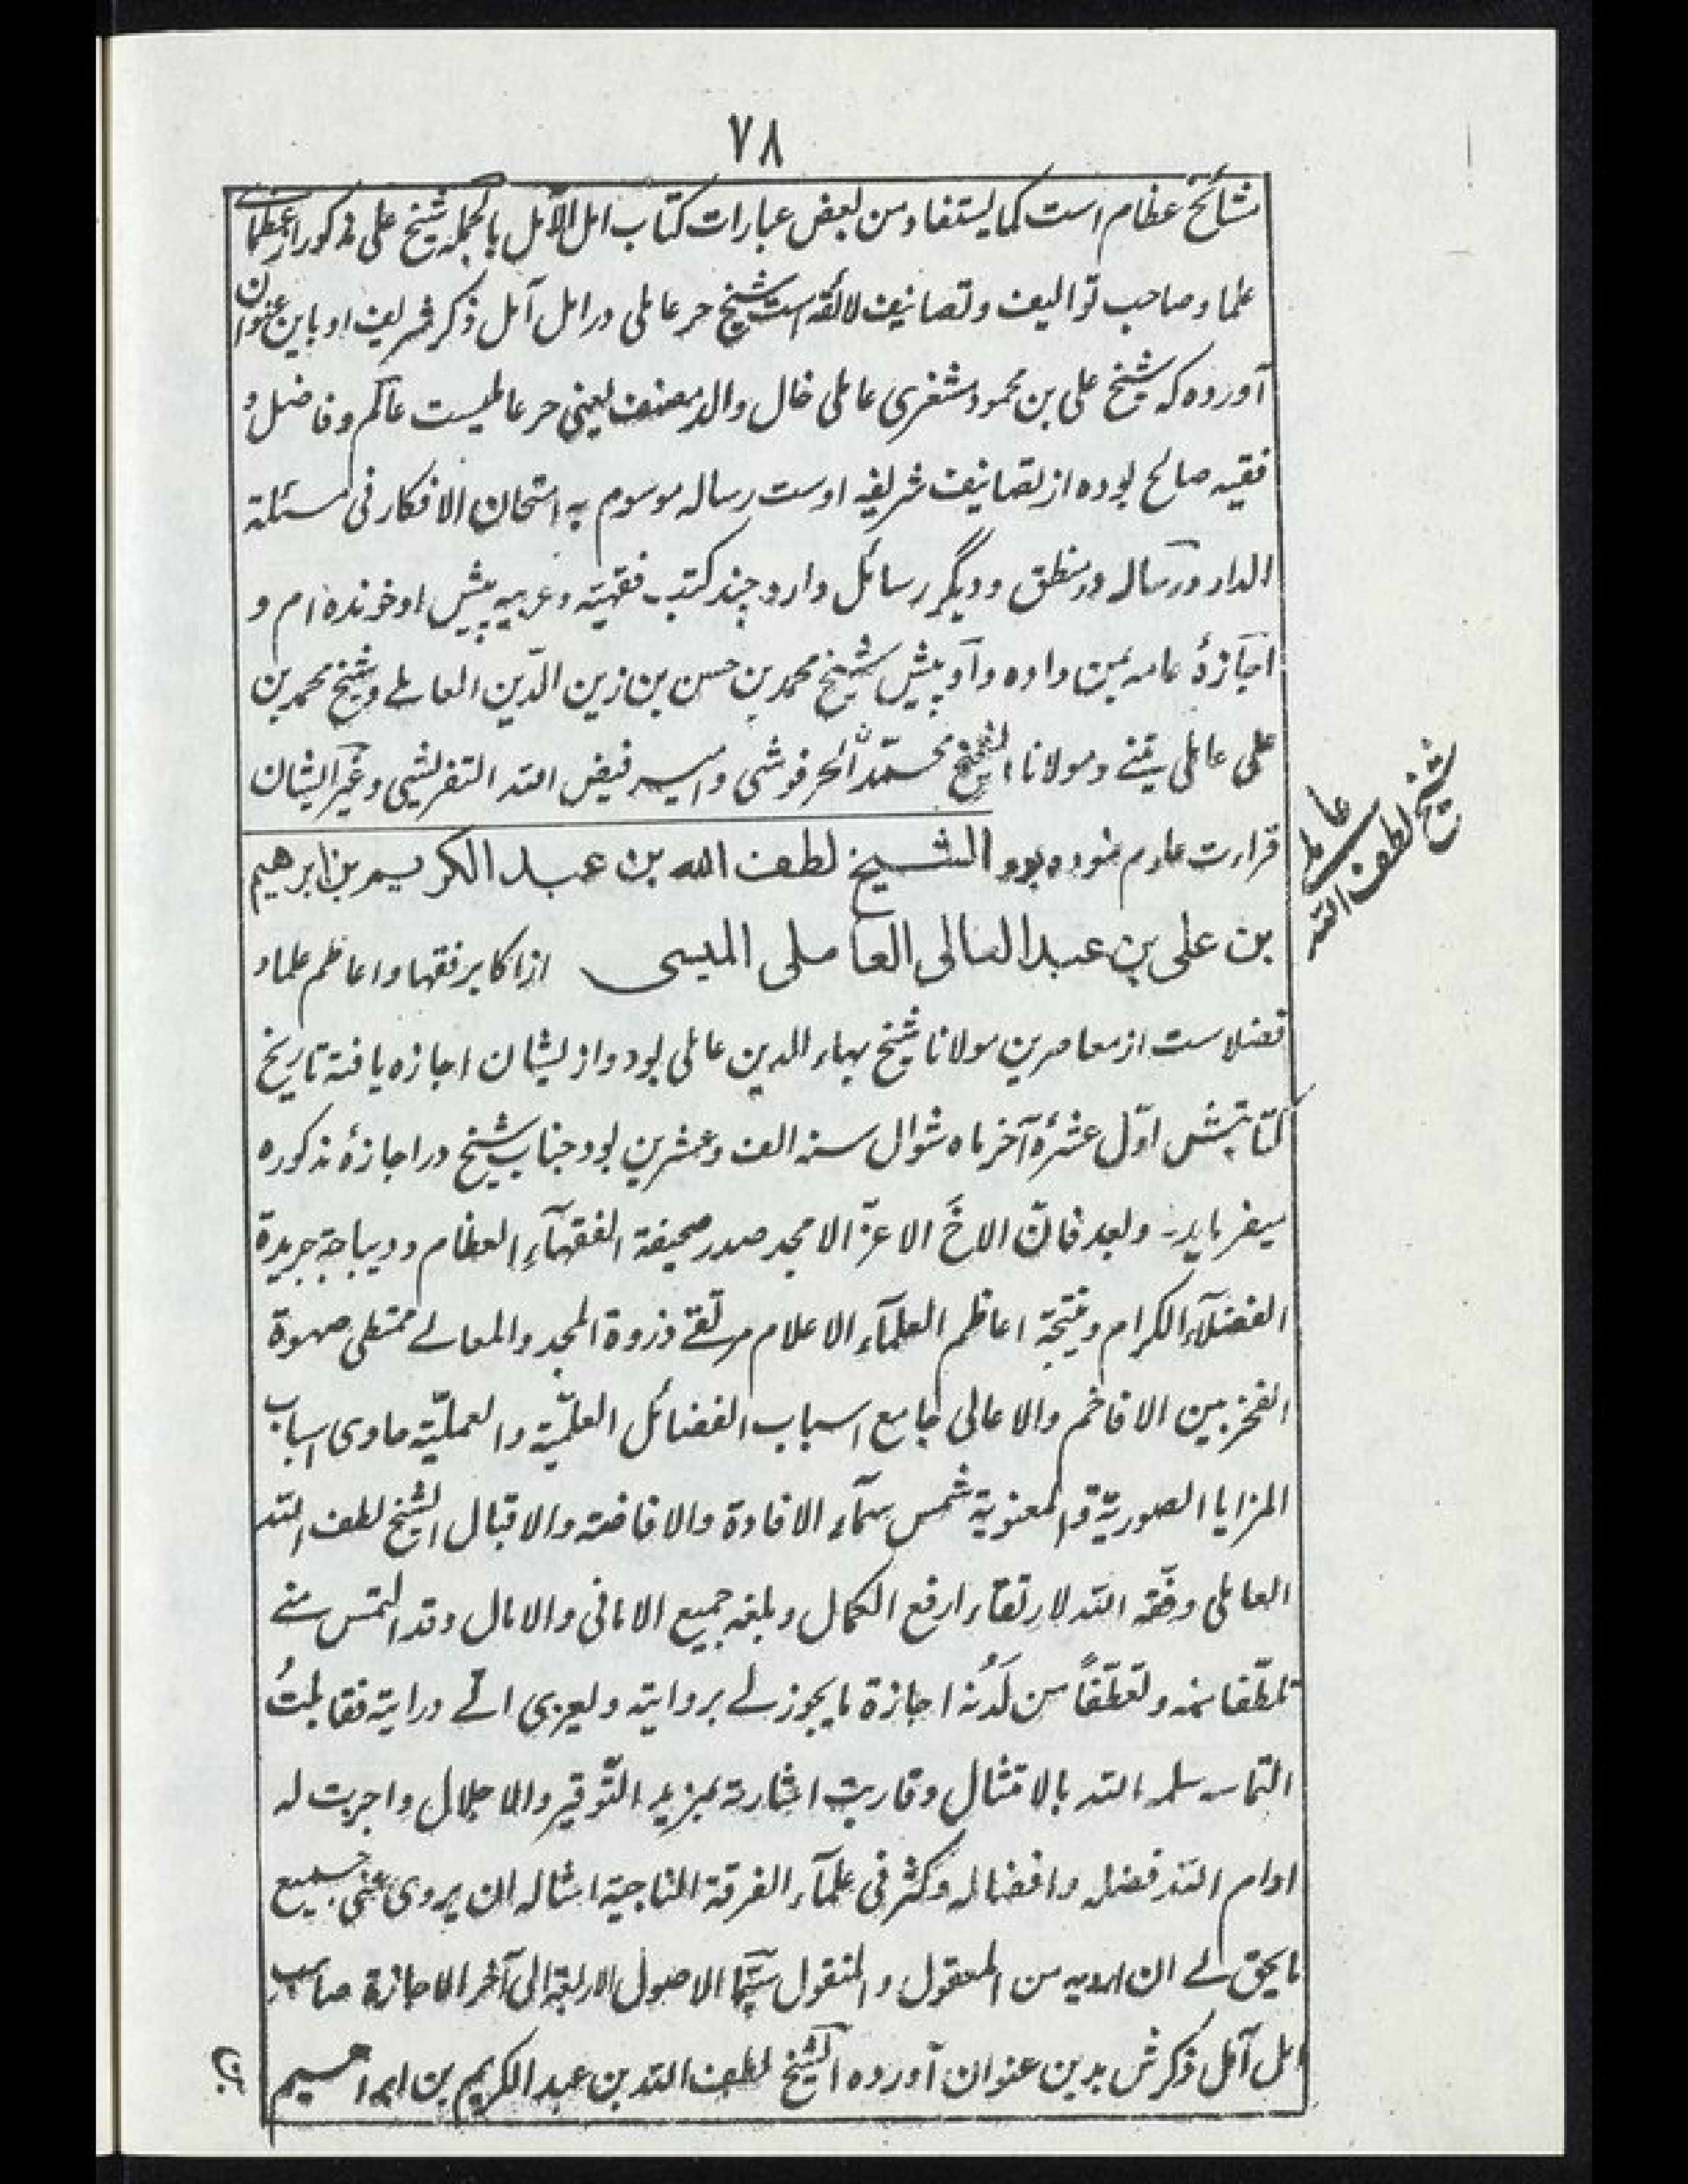 ٧٨
مشائخ عظام است کما یستفاد من بعض عبارات کتاب امل الآمل بالجمله شیخ علی مذکور از عظمای
علما و صاحب توالیف و تصانیف لائقه است شیخ حر عاملی در امل آمل ذکر شریف او باین عنوان
آورده که شیخ علی بن محمود مشغری عاملی خال والد مصنف یعنی حر عاملیست عالم و فاضل و
فقیه صالح بوده از تصانیف شریفه اوست رساله موسوم به امتحان الافکار فی مسئلة
الدار و رساله در منطق و دیگر رسائل دارد چند کتب فقهیّه و عربیه پیش او خونده ام و
اجازۀ عامه بمن داده و او پیش شیخ محمد بن حسن بن زین الدّین العاملے و شیخ محمد بن
علی عاملی تبنے و مولانا الشیخ محمّد الحرفوشی و امیر فیض الله التفریشی و غیر ایشان
قراءت علوم نموده بود الشیخ لطف الله بن عبد الکریم بن ابرهیم
بن علی بن عبد العالی العاملی المیسی از اکابر فقها و اعاظم علما و
شیخ لطف الله
عاملی
فضلاست از معاصرین مولانا شیخ بهاء الدین عاملی بود و از ایشان اجازه یافته تاریخ
کتابتش اوّل عشرۀ آخر ماه شوال سنه الف و عشرین بود جناب شیخ در اجازۀ مذکوره
میفرماید۔ وبعد فانّ الاخَ الاعزّ الامجد صدر صحیفة الفقهآءِ العظام و دیباجة جریدة
الفضلآء الکرام و نتیجة اعاظم العلمآء الاعلام مرتقے ذروة المجد والمعالے ممتطی صهوة
الفخر بین الافاخم والاعالی جامع اسباب الفضائل العلمیّة والعملیّة حاوی اسباب
المزایا الصوریّة والمعنویة شمس سمآء الافادة والافاضة والاقبال الشیخ لطف الله
العاملی وفّقه الله لارتقاء ارفع الکمال و بلغه جمیع الامانی والامال وقد التمس منے
تلطّفا منه و تعطّفاً من لَدُنه اجازة ما یجوز لے بروایته و یعزی الے درایة فقابلتُ
التماسه سلمه الله بالامتثال و قاربت اشارته بمزید التّوقیر والاجلال واجزت له
ادام الله فضله وافضاله وکثر فی علمآء الفرقة الناجیة امثاله ان یروی عنی جمیع
ما یحق لے ان ارویه من المعقول والمنقول سیّما الاصول الاربعة الی آخر الاجازة صاحب
امل آمل ذکرش بدین عنوان آورده الشیخ لطف الله بن عبد الکریم بن ابراهیم
بن